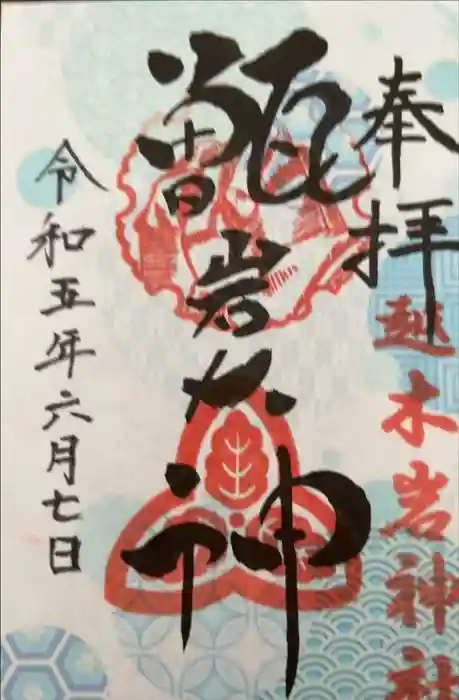 奉拝
越木岩神社
甑岩大神
令和五年六月七日